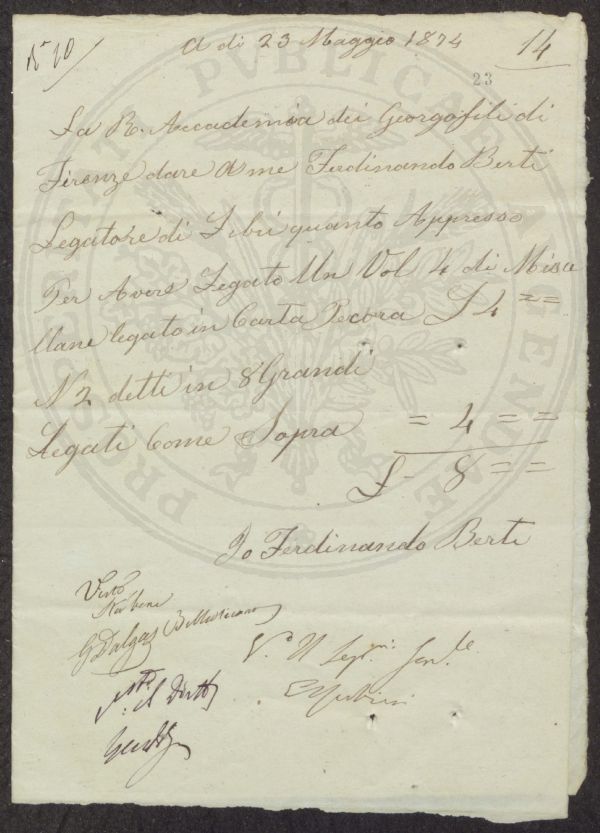 N° 10
A di 23 Maggio 1874
14
23
La R. Accademia dei Georgofili di
Firenze dare a me Ferdinando Berti
Legatore di Libri quanto Appresso
Per Avere Legato Un Vol 4 di Misce
llane legato in Carta Pecora £ 4 = =
N 2 detti in 8 Grandi
Legati Come Sopra = 4 = =
£ - 8 = =
Io Ferdinando Berti
Visto
Va bene
G Dalgas Bibliotecario
V° Il Segr. Gen.le
PROSPERITATI PVBLICAE AVGENDAE